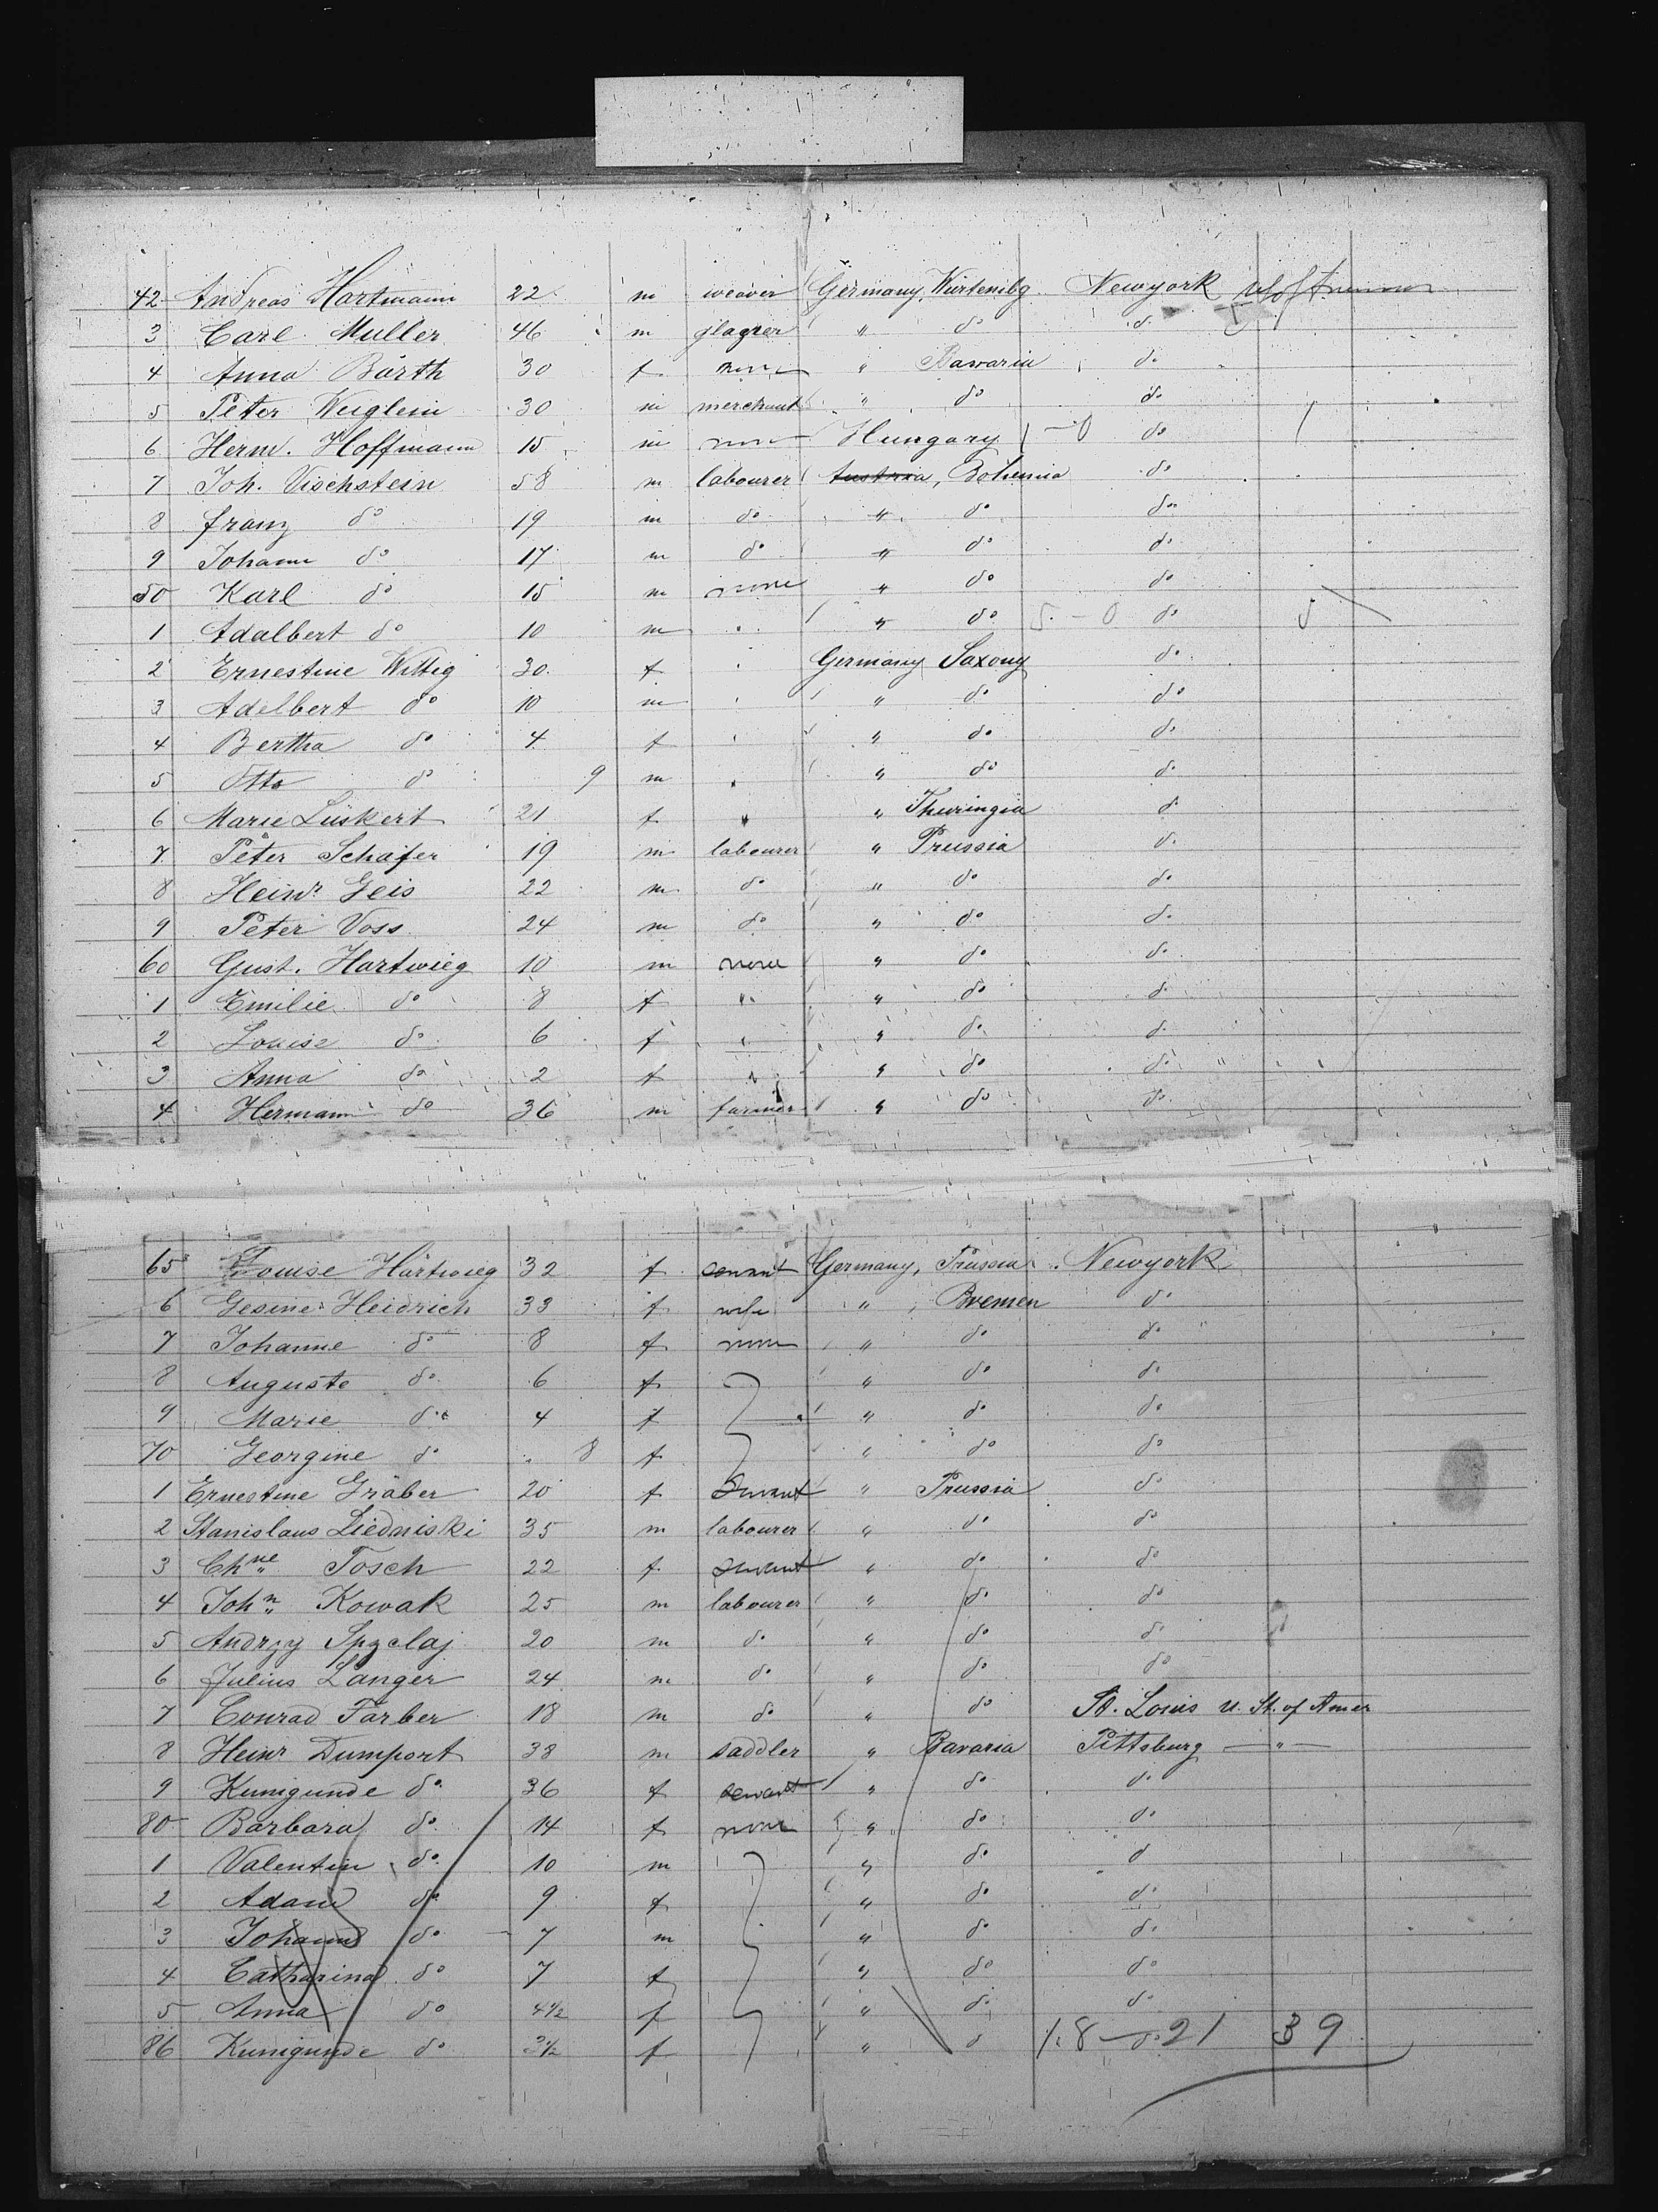 42 Andreas Hartmann 22 m weaver Germany, Würtembg. Newyork
3 Carl Müller 46 m " do do
4 Anna Barth 30 f none " Bavaria do
5 Peter Weiglein 30 m merchant " do do
6 Herm. Hoffmann 15 m none Hungary 1 - 0 do 1
7 Joh. Vischstein 58 m labourer Austria, Bohemia do
8 Franz do 19 m do " do do
9 Johann do 17 m do " do do
50 Karl do 15 m none " do do
1 Adalbert do 10 m " " do 5 - 0 do 5
2 Ernestine Wittig 30 f " Germany Saxony do
3 Adelbert do 10 m " " do do
4 Bertha do 4 f " " do do
5 Otto do 9 m " " do do
6 Marie Lüskert 21 f " " Thuringia do
7 Peter Schäfer 19 m labourer " Prussia do
8 Heinr. Geis 22 m do " do do
9 Peter Voss 24 m do " do do
60 Gust. Hartwieg 10 m none " do do
1 Emilie do 8 f " " do do
2 Louise do 6 f " " do do
3 Anna do 2 f " " do do
4 Hermann do 36 m farmer " do do
65 Louise Hartwieg 32 f servant Germany, Prussia Newyork
6 Gesine Heidrich 33 f wife " Bremen do
7 Johanne do 8 f none " do do
8 Auguste do 6 f " do do
9 Marie do 4 f " do do
70 Georgine do " 8 f " do do
1 Ernestine Gräber 20 f servant " Prussia do
2 Stanislaus Liedniski 35 m labourer " do do
3 Chne Tosch 22 f servant " do do
4 John Kowak 25 m labourer " do do
5 Andrzy Spzclaj 20 m do " do do
6 Julius Langer 24 m do " do do
7 Conrad Färber 18 m do " do St. Louis U. St. of Amer
8 Heinr Dumport 38 m saddler " Bavaria Pittsburg — " —
9 Kunigunde do 36 f servant " do do
80 Barbara do 14 f none " do do
1 Valentin do 10 m " do do
2 Adam do 9 f " do do
3 Johann do 7 m " do do
4 Catharina do 7 f " do do
5 Anna do 4 1/2 f " do do
86 Kunigunde do 3 1/2 f " do do 18 - 21 39